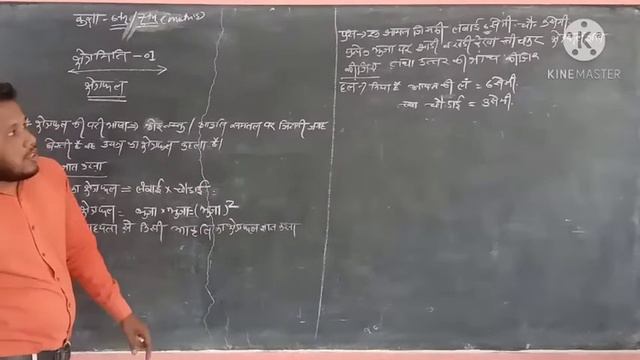 कक्षा - 6th / 7th (maths)
क्षेत्रमिति - 01
क्षेत्रफल
क्षेत्रफल की परिभाषा → कोई वस्तु / आकृति समतल पर जितनी जगह
घेरती है वह उसका क्षेत्रफल कहलाता है।
ज्ञात करना
का क्षेत्रफल = लंबाई × चौड़ाई
क्षेत्रफल = भुजा × भुजा = (भुजा)²
सहायता से किसी आकृति का क्षेत्रफल ज्ञात करना
एक आयत जिसकी लंबाई 6 सेमी चौ० 3 सेमी
प्रत्येक भुजा पर खड़ी रेखा खींचकर क्षेत्रफल ज्ञात
कीजिये तथा उत्तर की जांच कीजिए
हल → दिया है आयत की लं = 6 सेमी
तथा चौड़ाई = 3 सेमी
KINEMASTER